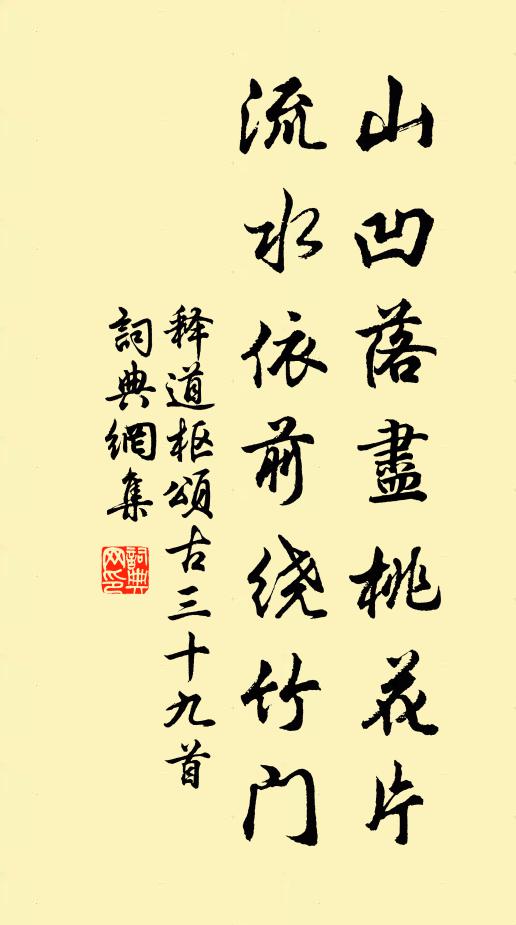 山凹落盡桃花片
流水依前绕竹门
释道枢頌古三十九首
詞典網集
詞典网印